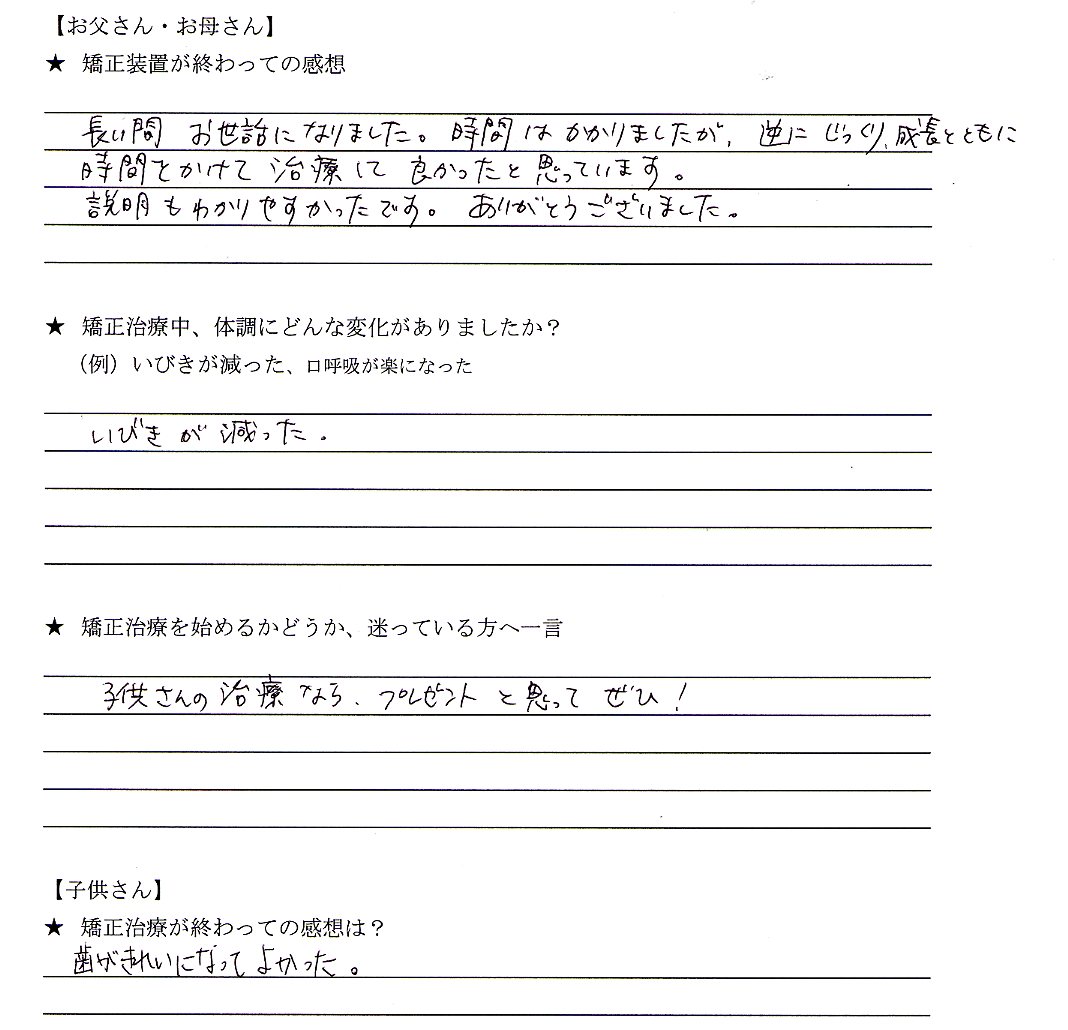 【お父さん・お母さん】
★ 矯正装置が終わっての感想
長い間 お世話になりました。時間はかかりましたが、逆にじっくり、成長とともに
時間をかけて治療して良かったと思っています。
説明もわかりやすかったです。ありがとうございました。
★ 矯正治療中、体調にどんな変化がありましたか？
（例）いびきが減った、口呼吸が楽になった
いびきが減った。
★ 矯正治療を始めるかどうか、迷っている方へ一言
子供さんの治療なら、プレゼントと思ってぜひ！
【子供さん】
★ 矯正治療が終わっての感想は？
歯がきれいになってよかった。